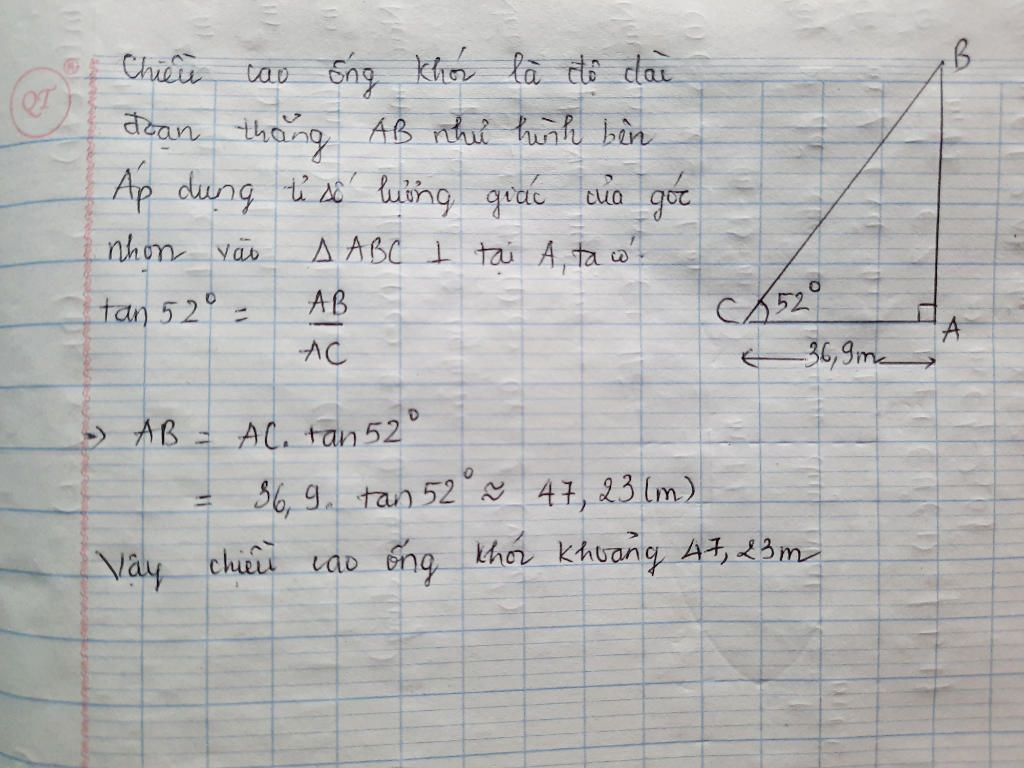 QT
Chiều cao ống khói là độ dài
đoạn thẳng AB như hình bên
Áp dụng tỉ số lượng giác của góc
nhọn vào Δ ABC ⊥ tại A, ta có:
tan 52° = AB
AC
→ AB = AC. tan 52°
= 36,9. tan 52° ≈ 47,23 (m)
Vậy chiều cao ống khói khoảng 47,23m
B
C 52°
A
36,9m